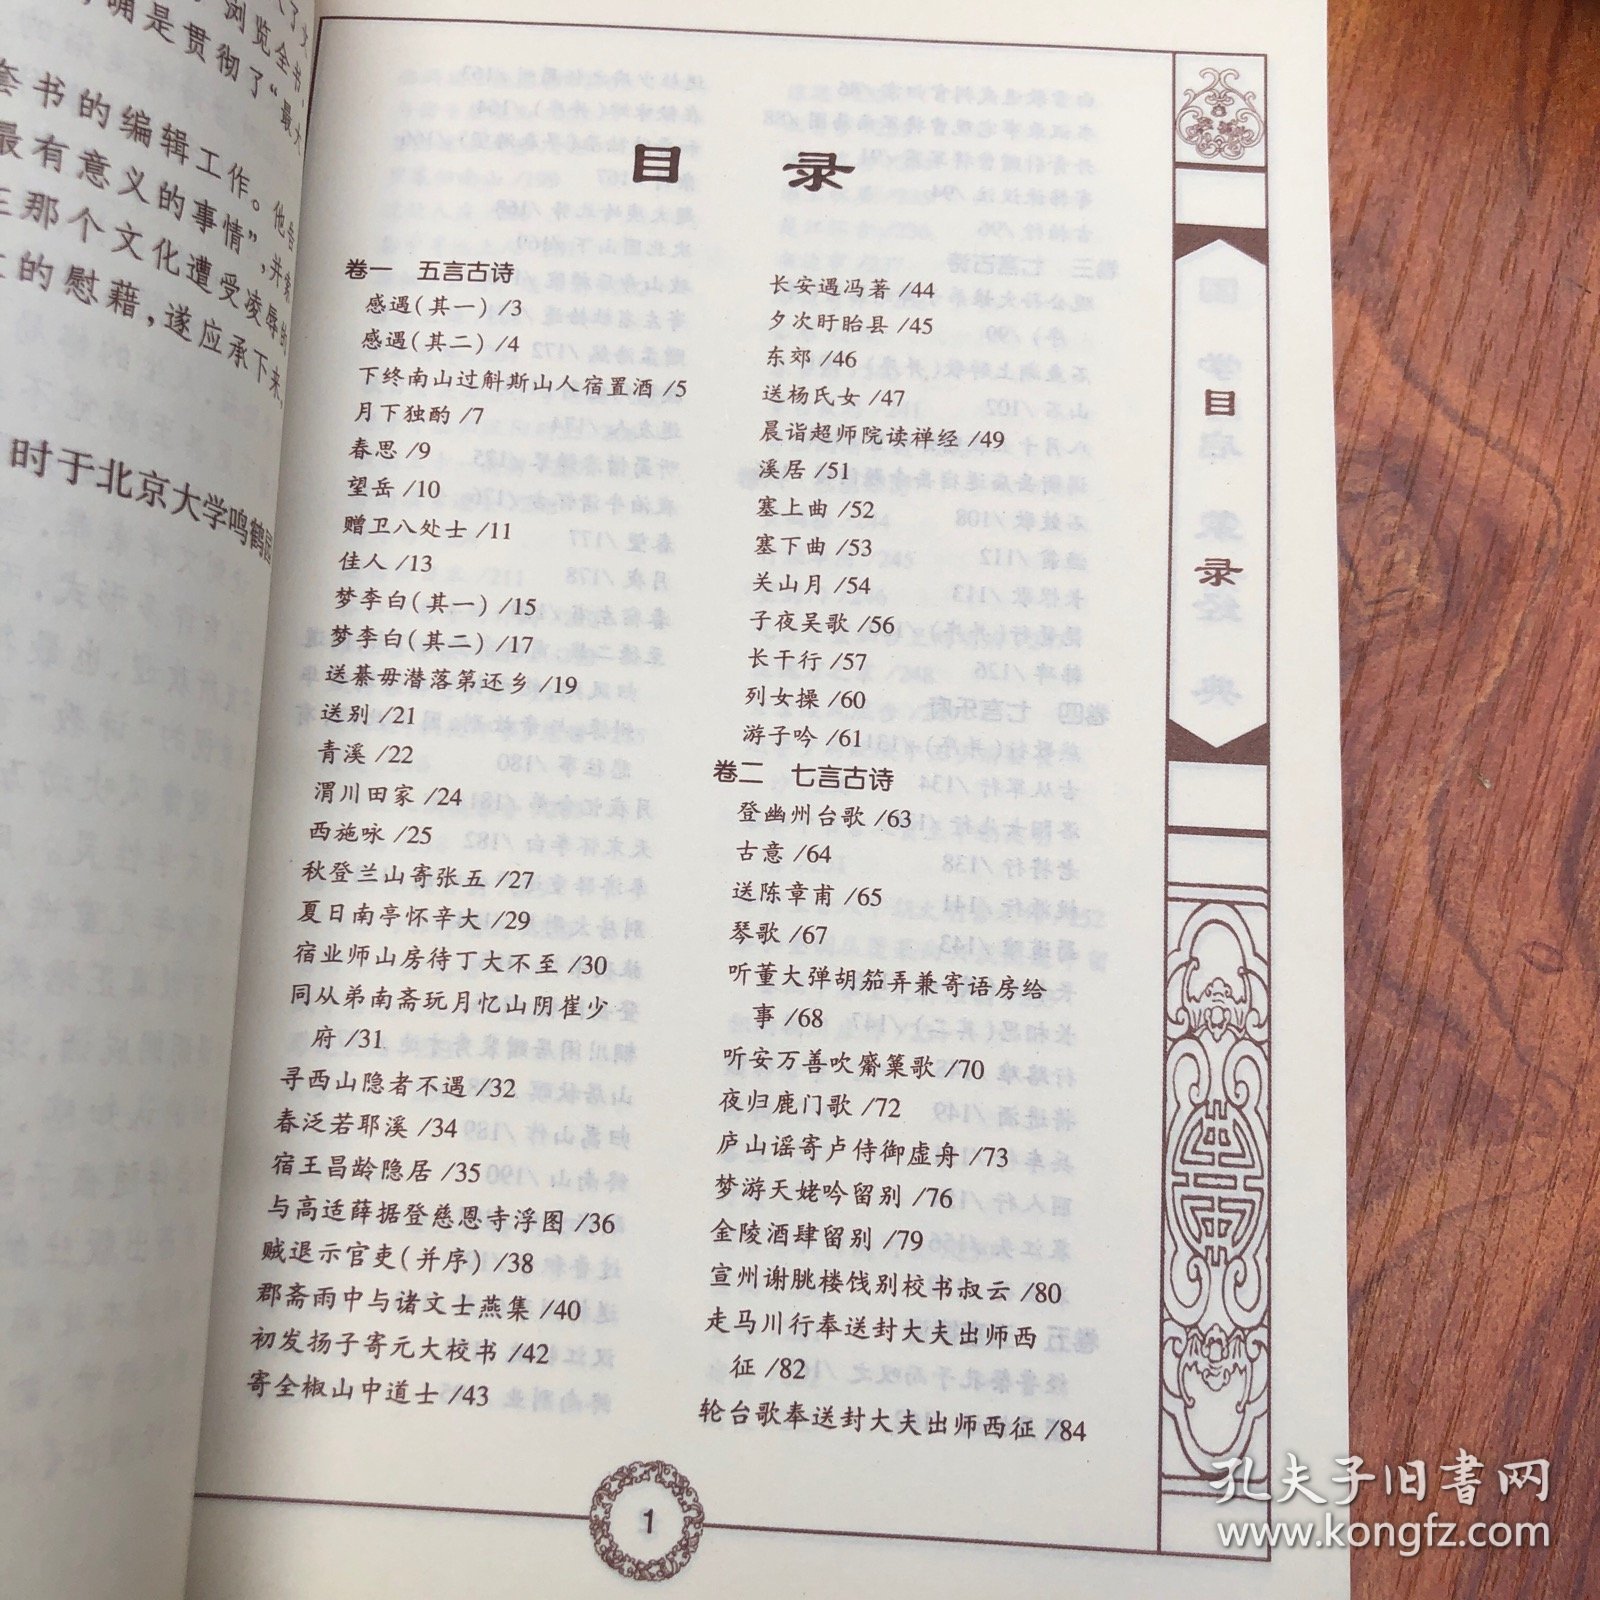 浏览全书
确是贯彻了“最大
套书的编辑工作。他告
最有意义的事情”,并案
在那个文化遭受凌辱的
的慰藉,遂应承下来,
时于北京大学鸣鹤园
目 录
卷一 五言古诗
感遇(其一) /3
感遇(其二) /4
下终南山过斛斯山人宿置酒 /5
月下独酌 /7
春思 /9
望岳 /10
赠卫八处士 /11
佳人 /13
梦李白(其一) /15
梦李白(其二) /17
送綦毋潜落第还乡 /19
送别 /21
青溪 /22
渭川田家 /24
西施咏 /25
秋登兰山寄张五 /27
夏日南亭怀辛大 /29
宿业师山房待丁大不至 /30
同从弟南斋玩月忆山阴崔少
府 /31
寻西山隐者不遇 /32
春泛若耶溪 /34
宿王昌龄隐居 /35
与高适薛据登慈恩寺浮图 /36
贼退示官吏(并序) /38
郡斋雨中与诸文士燕集 /40
初发扬子寄元大校书 /42
寄全椒山中道士 /43
长安遇冯著 /44
夕次盱眙县 /45
东郊 /46
送杨氏女 /47
晨诣超师院读禅经 /49
溪居 /51
塞上曲 /52
塞下曲 /53
关山月 /54
子夜吴歌 /56
长干行 /57
列女操 /60
游子吟 /61
卷二 七言古诗
登幽州台歌 /63
古意 /64
送陈章甫 /65
琴歌 /67
听董大弹胡笳弄兼寄语房给
事 /68
听安万善吹觱篥歌 /70
夜归鹿门歌 /72
庐山谣寄卢侍御虚舟 /73
梦游天姥吟留别 /76
金陵酒肆留别 /79
宣州谢朓楼饯别校书叔云 /80
走马川行奉送封大夫出师西
征 /82
轮台歌奉送封大夫出师西征 /84
目
录
1
孔夫子旧书网
www.kongfz.com